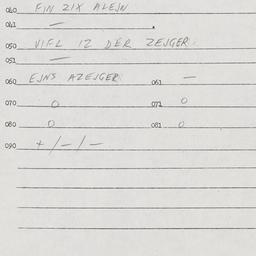 040 FIN ZIX ALEJN
041 —
050 VIFL IZ DER ZEJGER
051 —
060 EJNS AZEJGER 061 —
070 0 071 0
080 0 081 0
090 + / — / —